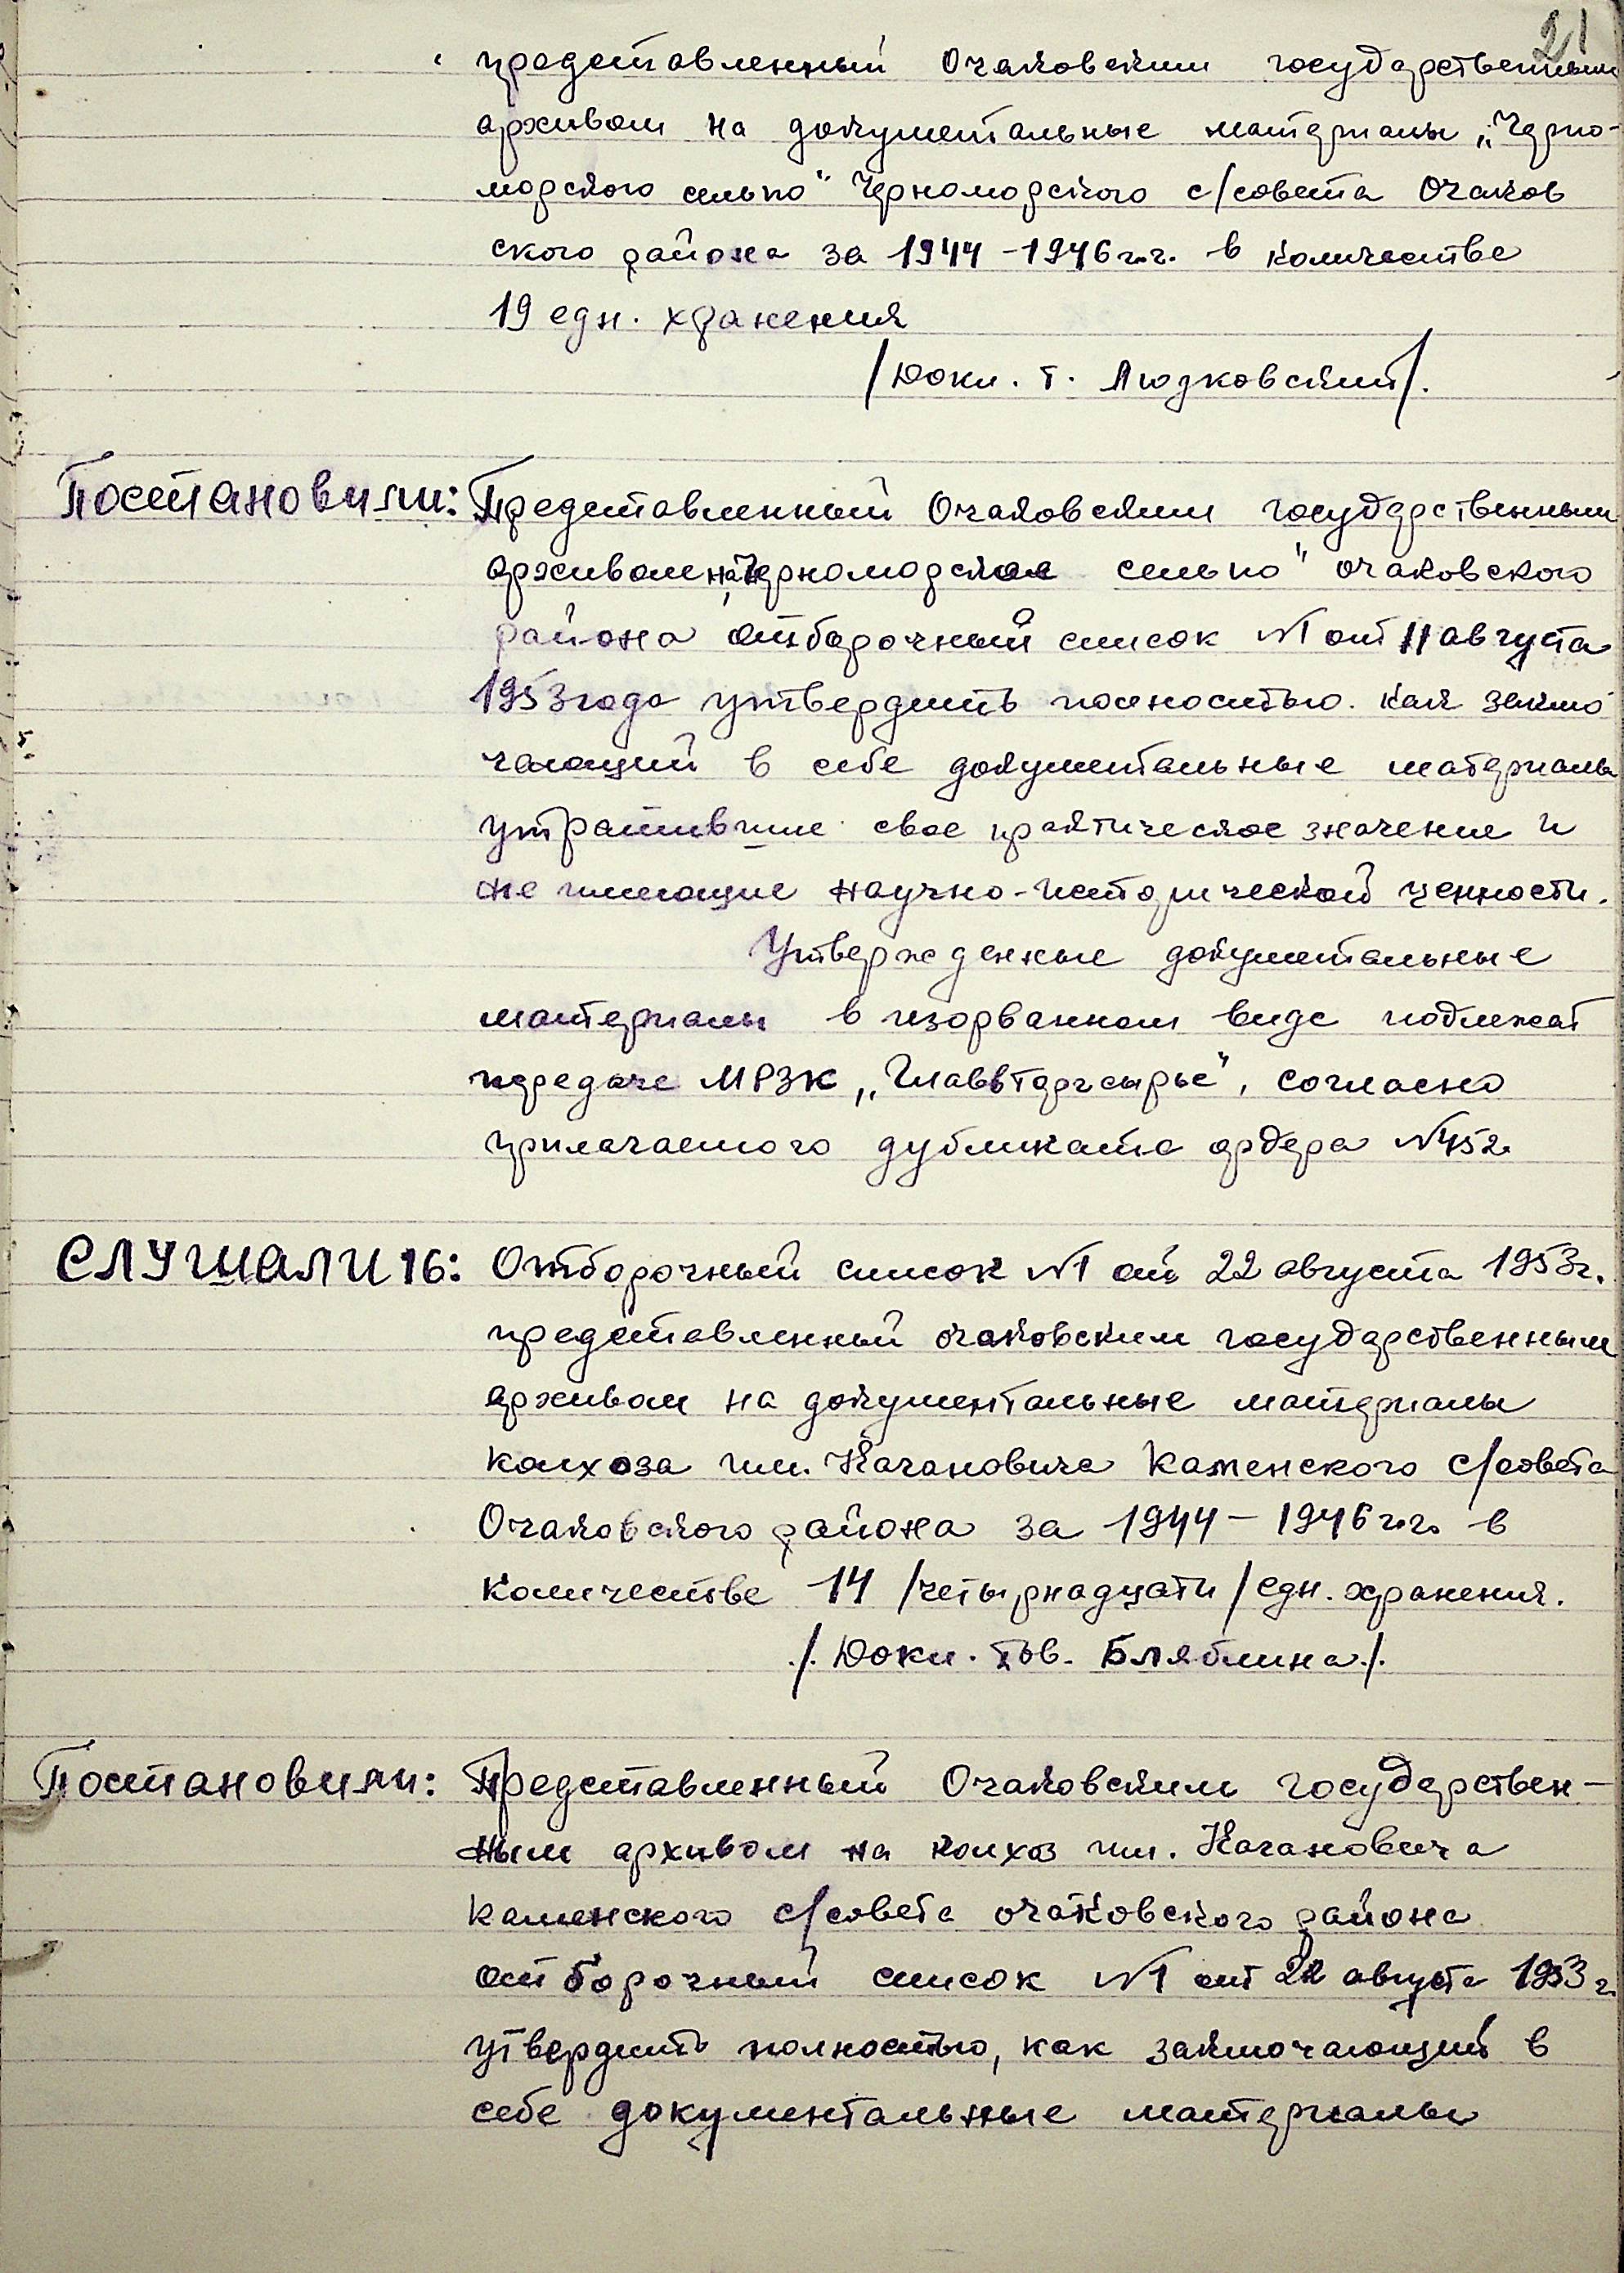 21
представленный Очаковским государственным
архивом на документальные материалы „Черно-
морского сельпо" Черноморского с/совета Очаков
ского района за 1944-1946 г.г. в количестве
19 едн. хранения
/Докл. т. Людковский/.
Постановили: Представленный Очаковским государственным
архивом на „Черноморское сельпо" очаковского
района отборочный список №1 от 11 августа
1953 года утвердить полностью. как заклю
чающий в себе документальные материалы
утратившие свое практическое значение и
не имеющие научно-исторической ценности.
Утвержденные документальные
материалы в изорванном виде подлежат
передаче МРЗК „Главвторгсырье", согласно
прилагаемого дубликата ордера №452
СЛУШАЛИ 16: Отборочный список №1 от 22 августа 1953г.
представленный очаковским государственным
архивом на документальные материалы
колхоза им. Кагановича Каменского с/совета
Очаковского района за 1944-1946 г.г. в
количестве 14 /четырнадцати/ едн. хранения.
/. Докл. тов. Бляблина/.
Постановили: Представленный Очаковским государствен-
ным архивом на колхоз им. Кагановича
Каменского с/совета очаковского района
отборочный список №1 от 22 августа 1953 г.
утвердить полностью, как заключающий в
себе документальные материалы